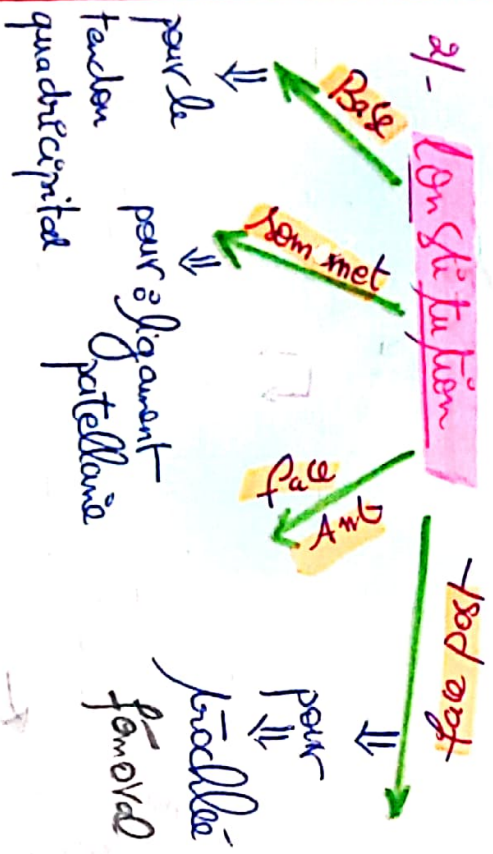 2/- Constitution
Base
⇓
pour le
tendon
quadricipital
Sommet
⇓
pour : ligament
patellaire
face
Ant
face post
⇓
pour
⇓
trochlée
fémoral